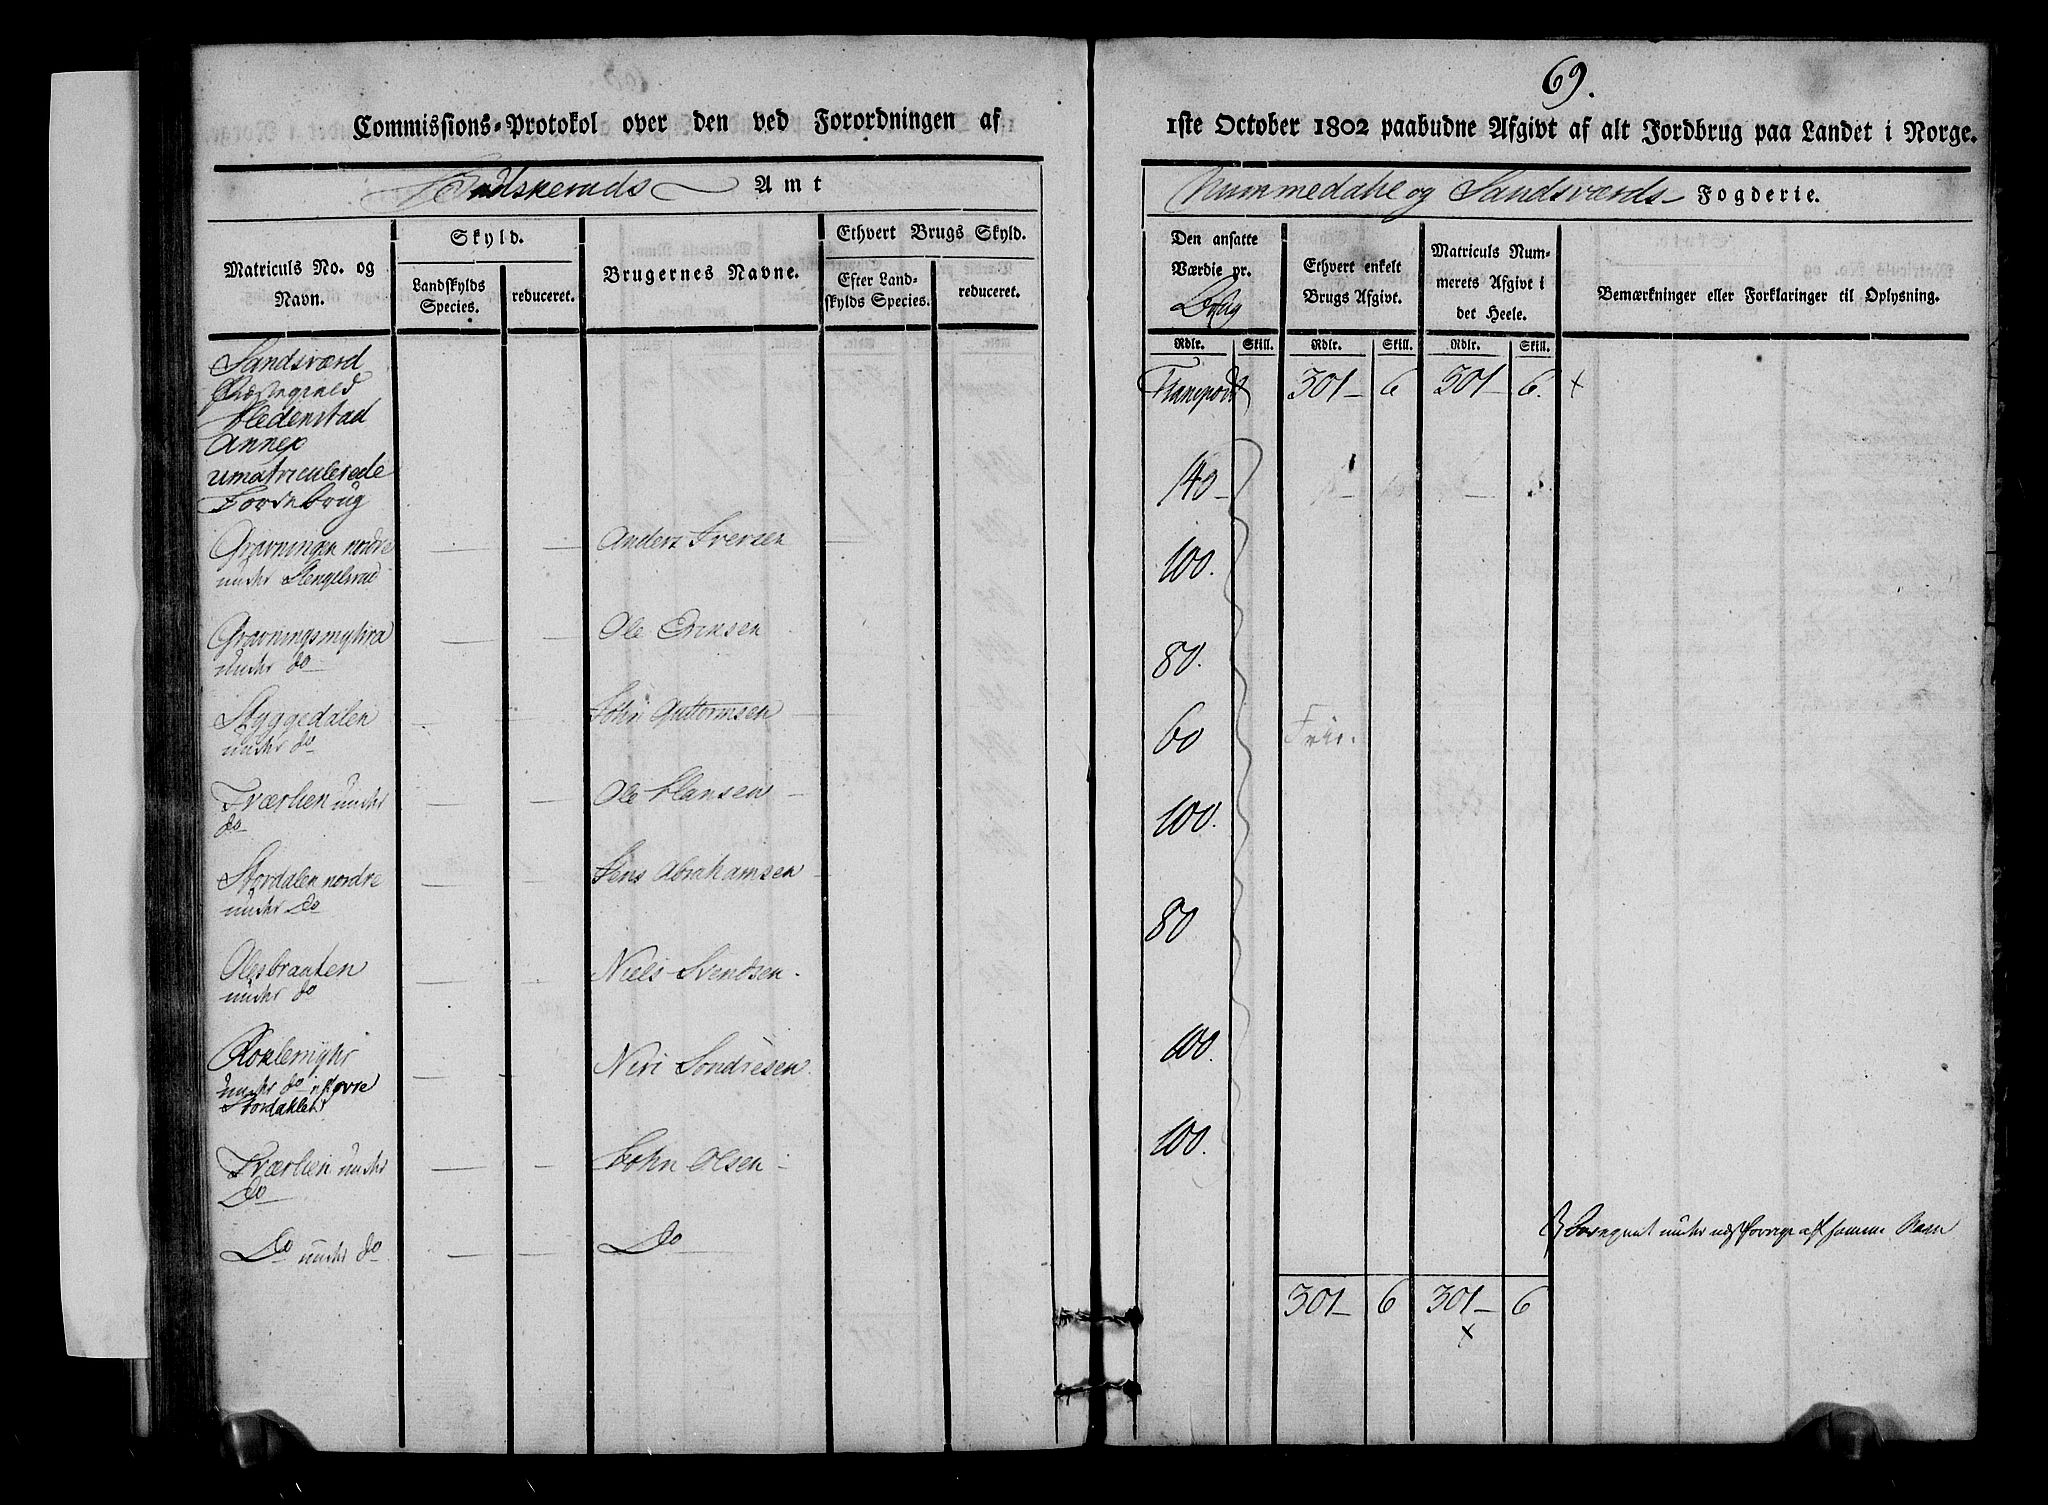 69.
Commissions-Protokol over den ved Forordningen af
1ste October 1802 paabudne Afgivt af alt Jordbrug paa Landet i Norge.
Budskeruds Amt
Nummedahl og Sandsværds Fogderie.
Matriculs No. og Navn.
Skyld.
Landskylds Species.
reduceret.
Brugernes Navne.
Ethvert Brugs Skyld.
Efter Landskylds Species.
reduceret.
Den ansatte Værdie pr.
Brug
Ethvert enkelt Brugs Afgivt.
Matriculs Nummerets Afgivt i det Heele.
Bemærkninger eller Forklaringer til Oplysning.
Rdlr. Skill. Rdlr. Skill. Rdlr. Skill.
Sandsværd
Præstegield
Hedenstad
Annex
umatriculerede
Jordebrug
Transport 301 - 6 301 - 6. x
Gravningen nordre
under Hengelsrud
Anders Iversen
140 -
Gravningsmyhra
under do
Ole Ericsen
100.
Styggedalen
under do
John Guttormsen
80.
Tværlien under
do
Ole Hansen
60
Frie.
Stordalen nordre
under Do
Jens Abrahamsen
100.
Olesbraaten
under do
Niels Svendsen.
80
under do
Stordahlen
Niri Sondresen.
100.
Tværlien under
Do
John Olsen
100.
Do under do
Do
301 - 6 301 - 6
x